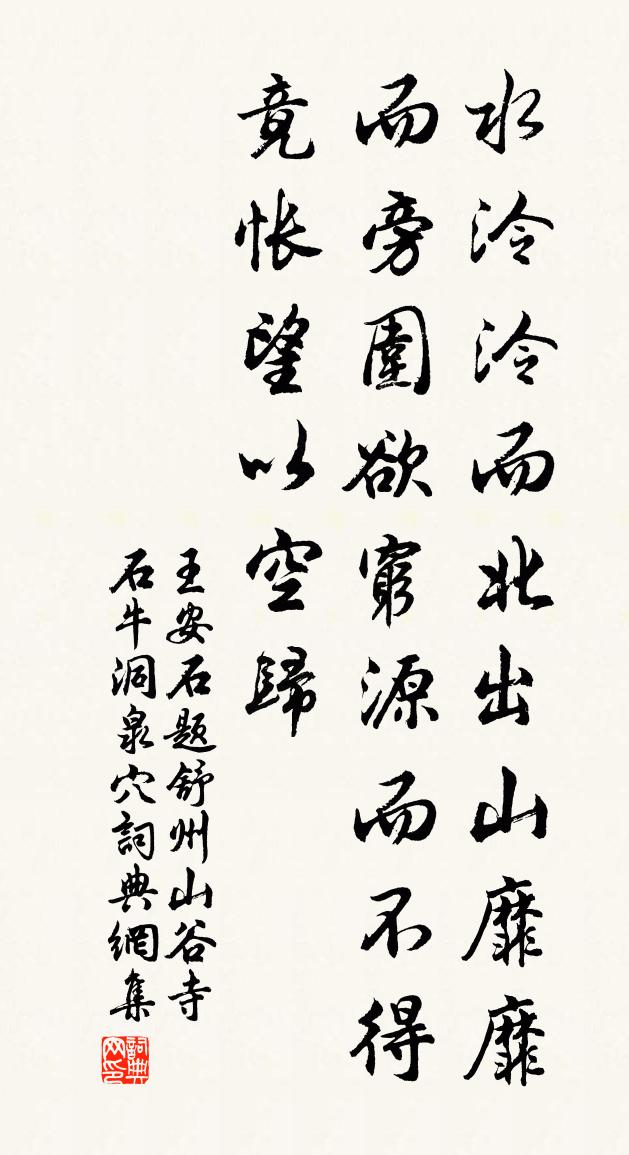 水泠泠而北出山靡靡
而旁圍欲窮源而不得
竟悵望以空歸
王安石题舒州山谷寺
石牛洞泉穴詞典網集
詞典
网印